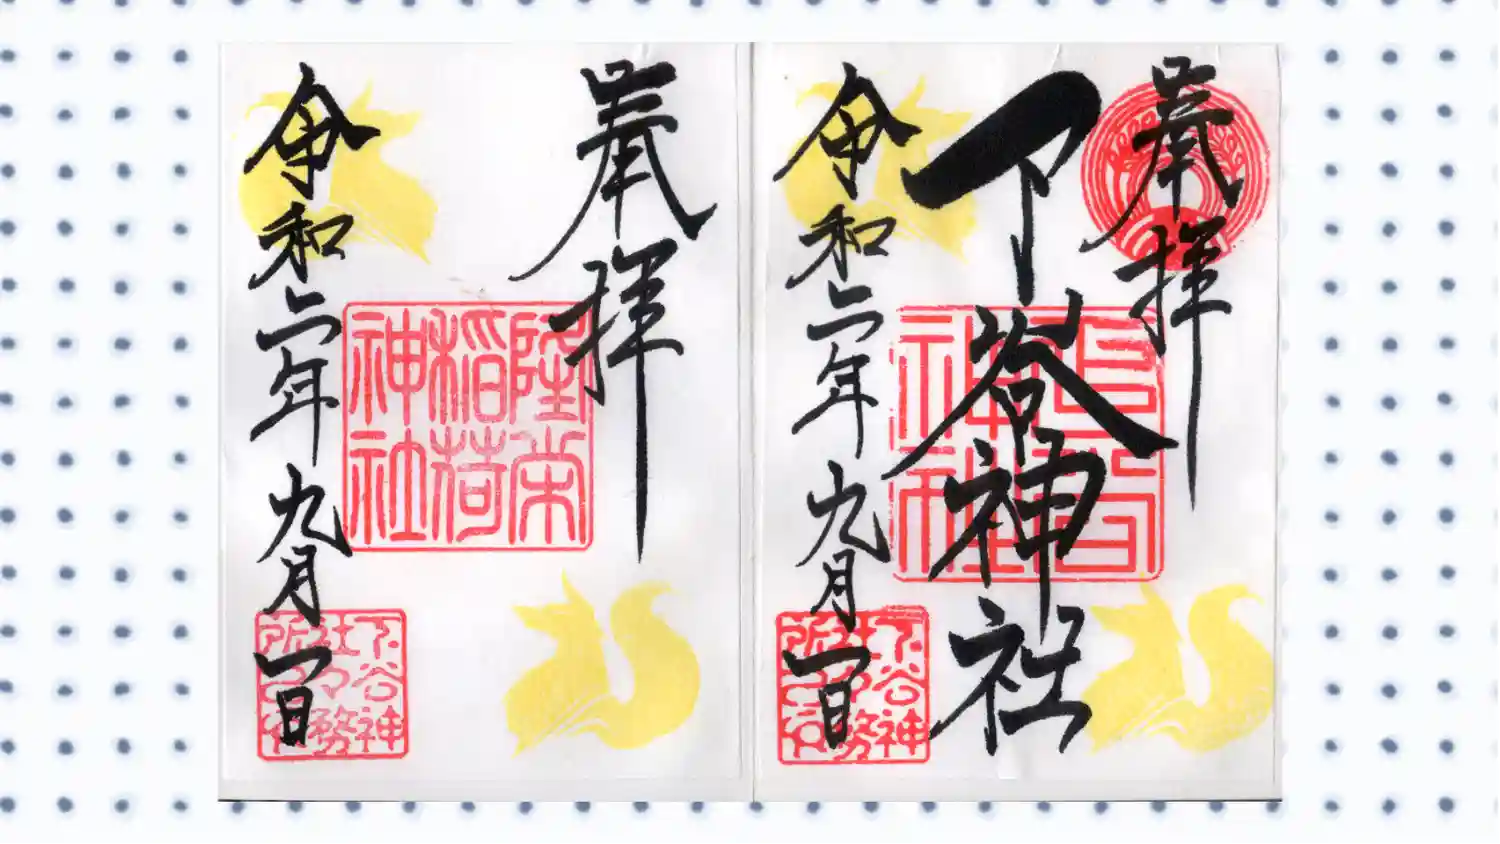 奉拝
下谷神社
令和二年九月一日
下谷神
社
務
所
奉拝
隆栄
稲荷
神社
令和二年九月一日
下谷神
社
務
所